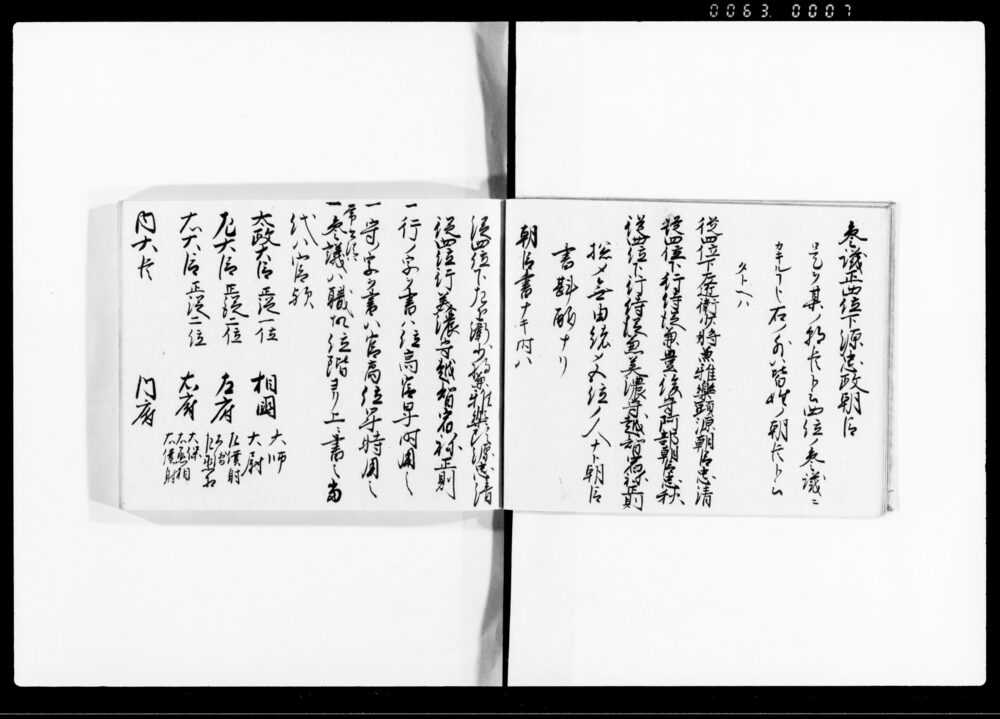 0063 0007
参議正四位下源忠政朝臣
是ヲ某ノ朝臣ト云四位ノ参議ニ
カキルヿ也右ノ外皆姓ノ朝臣ト云
タトヘハ
従四位下左近衛少将兼雅楽頭源朝臣忠清
従四位下行侍従兼豊後守阿部朝臣忠秋
従四位下行侍従兼美濃守越智宿祢正則
総〆無由緒〆五位ノ人ハ下朝臣
書斟酌ナリ
朝臣書ナキ時ハ
従四位下左近衛少将兼雅楽頭源忠清
従四位行美濃守越智宿祢正則
一行ノ字ヲ書ハ位高官卑時用之
一守ノ字ヲ書ハ官高位卑時用之
一参議ハ職故位階ヨリ上ニ書之
代八官領
太政大臣正従一位 相國 大師 大尉
左大臣正従二位 左府 左僕射
右大臣正従二位 右府 大保 右丞相 右僕射
内大臣 内府